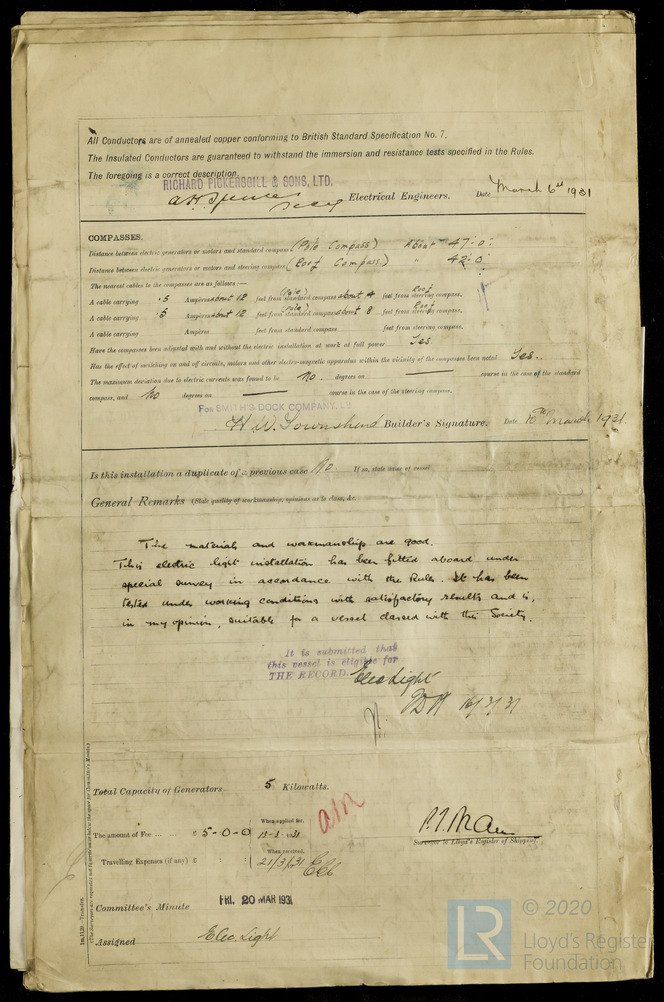 All Conductors are of annealed copper conforming to British Standard Specification No. 7.
The Insulated Conductors are guaranteed to withstand the immersion and resistance tests specified in the Rules.
The foregoing is a correct description.
RICHARD PICKERSGILL & SONS, LTD.
Electrical Engineers. Date March 6th 1931
COMPASSES.
Distance between electric generators or motors and standard compass (Pole Compass) About 47.0
Distance between electric generators or motors and steering compass (Roof Compass.) " 42.0
The nearest cables to the compasses are as follows:—
(Pole) Roof
A cable carrying .5 Ampères about 12 feet from standard compass about 4 feet from steering compass.
(Pole) Roof
A cable carrying .5 Ampères about 12 feet from standard compass about 8 feet from steering compass.
A cable carrying Ampères feet from standard compass feet from steering compass.
Have the compasses been adjusted with and without the electric installation at work at full power Yes.
Has the effect of switching on and off circuits, motors and other electro-magnetic apparatus within the vicinity of the compasses been noted Yes..
The maximum deviation due to electric currents was found to be No. degrees on — course in the case of the standard
compass, and No degrees on — course in the case of the steering compass.
FOR SMITH'S DOCK COMPANY,
H W Townshend Builder's Signature. Date 10th March 1931.
Is this installation a duplicate of a previous case No. If so, state name of vessel
General Remarks (State quality of workmanship, opinions as to class, &c.
The materials and workmanship are good.
This electric light installation has been fitted aboard under
special survey in accordance with the Rules. It has been
tested under working conditions with satisfactory results and is,
in my opinion, suitable for a vessel classed with this Society.
It is submitted that
this vessel is eligible for
THE RECORD. Elec Light
Total Capacity of Generators 5 Kilowatts.
The amount of Fee ... ... £ 5-0-0 When applied for, 13-3-1931
Travelling Expenses (if any) £ : : When received, 21/3/31
Surveyor to Lloyd's Register of Shipping.
Committee's Minute FRI. 20 MAR 1931
Assigned Elec. Light
LR © 2020
Lloyd's Register
Foundation